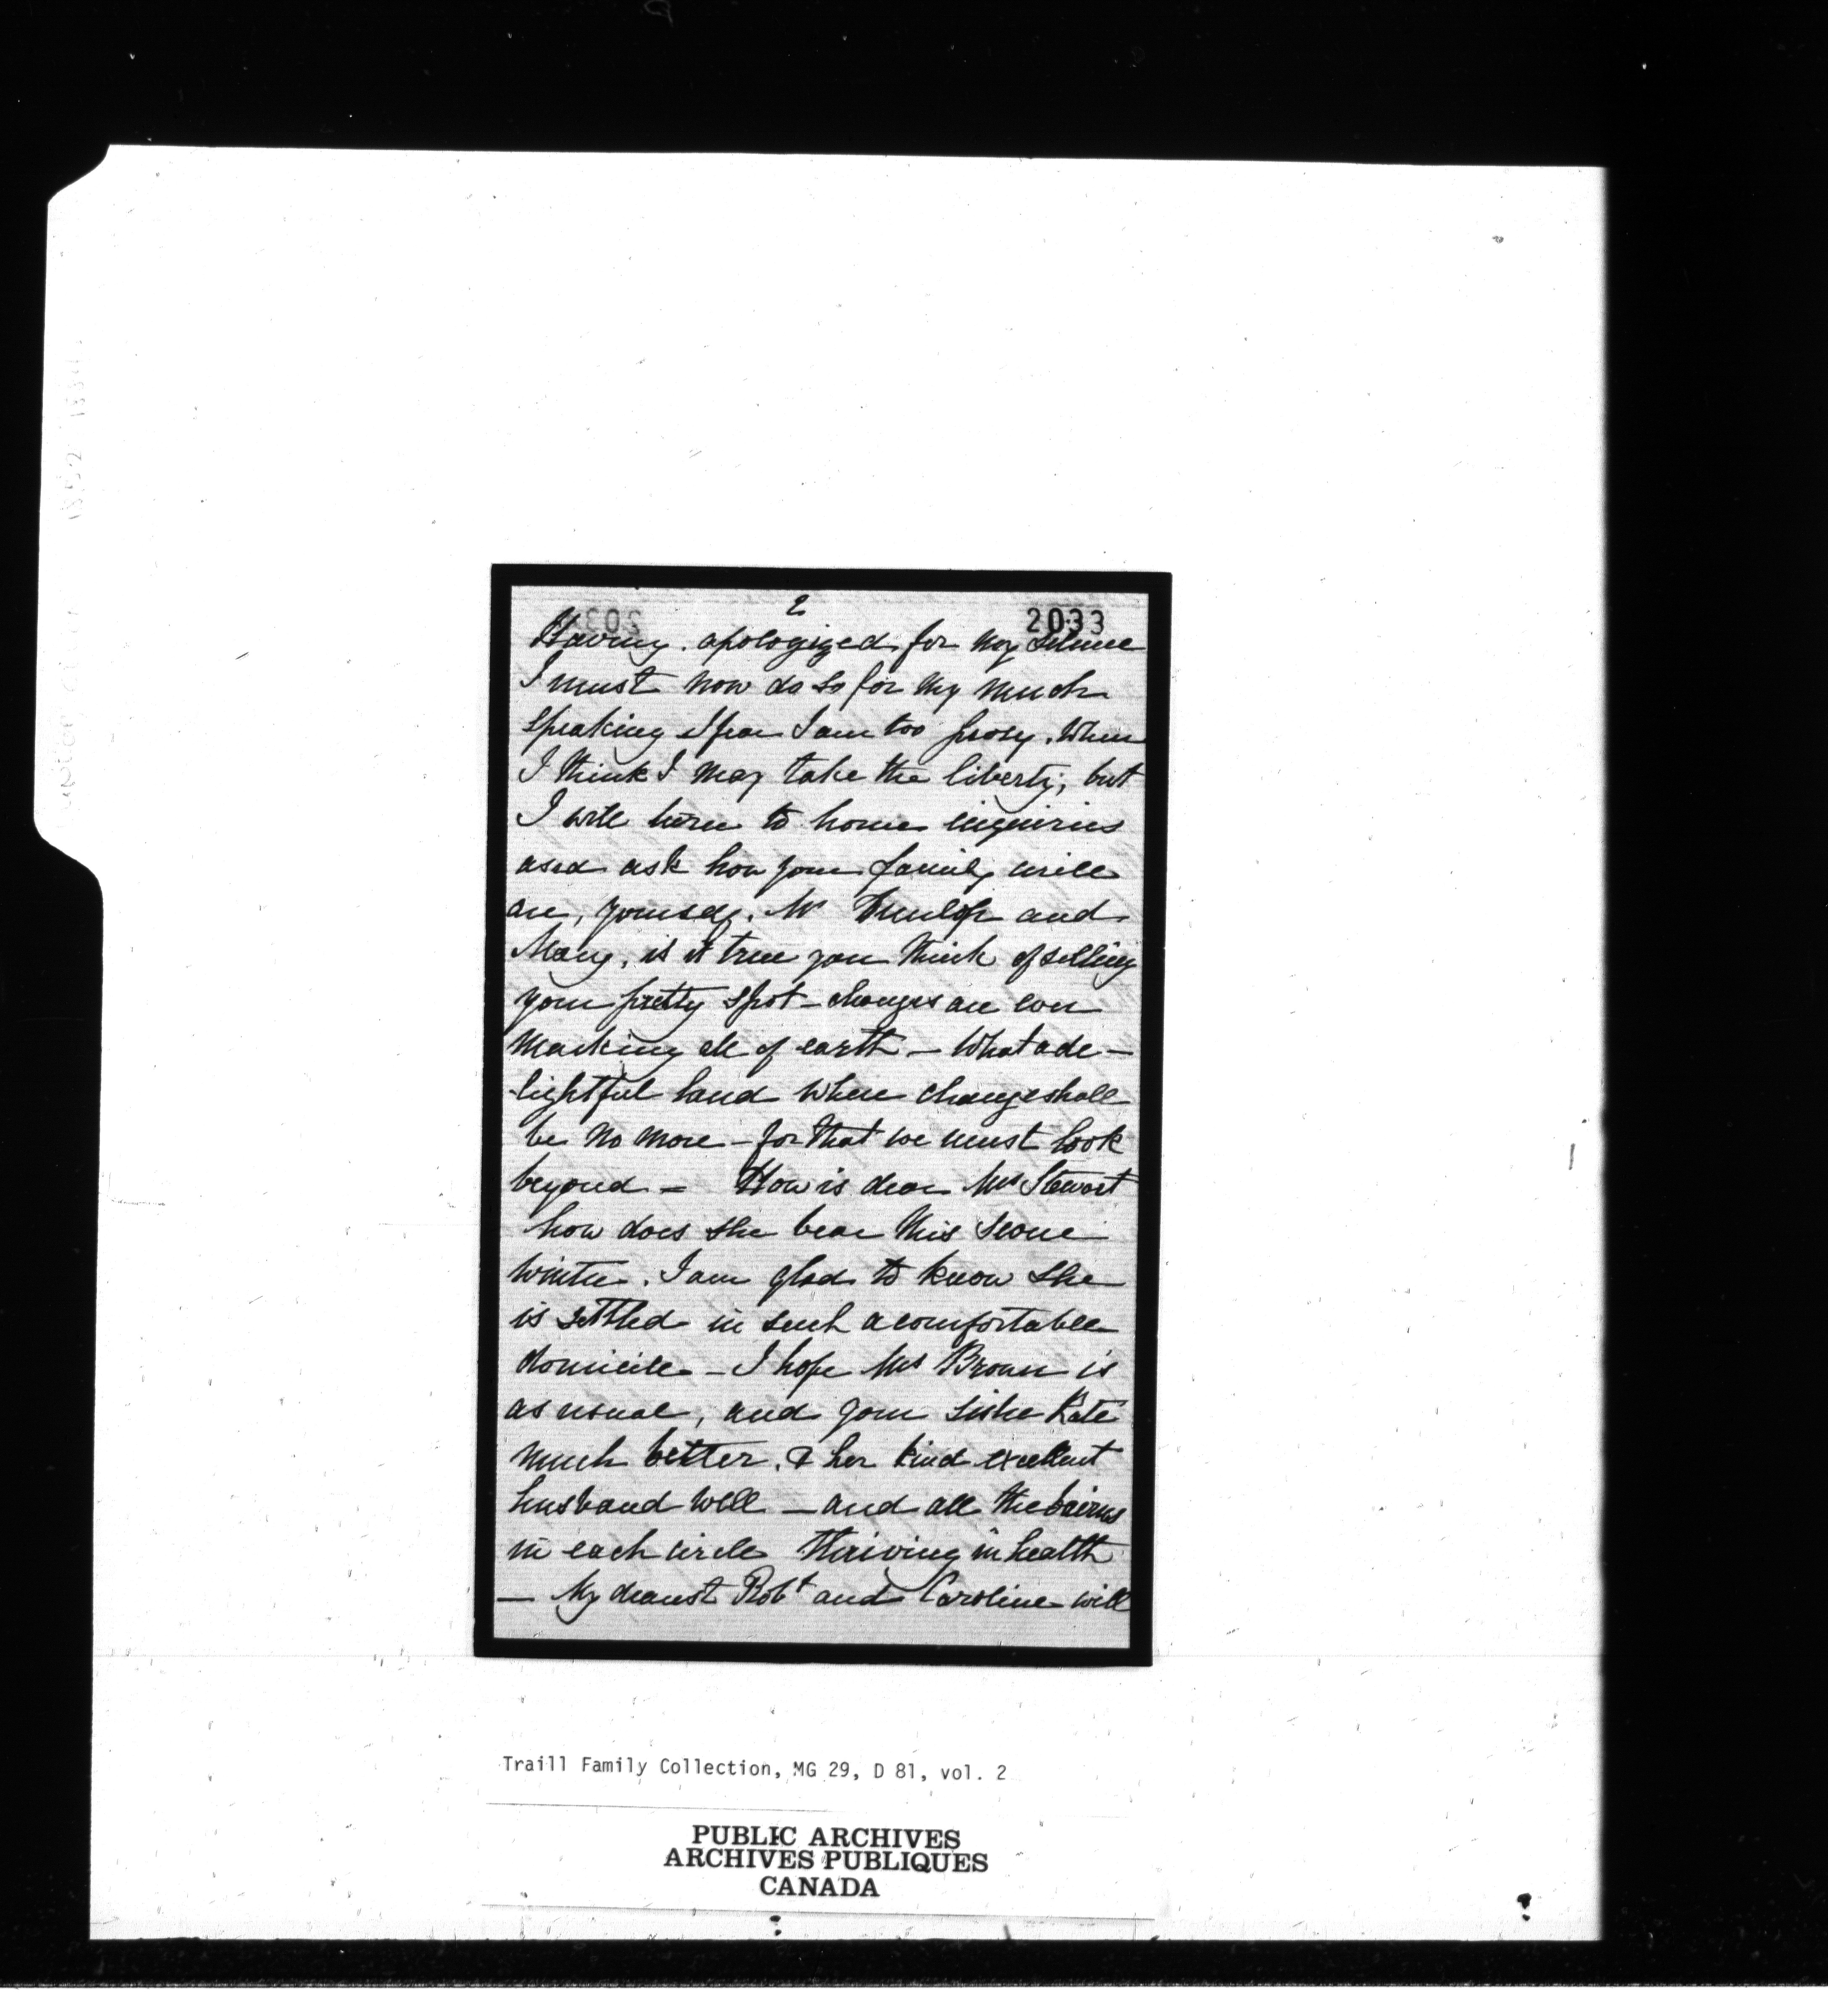 2
2033
Having apologized for my silence
I must now do so for my much
speaking I fear I am too prosy. When
I think I may take the liberty; but
I will turn to home enquiries
and ask how your family circle
are, yourself. Mr Dunlop and
Mary, is it true you think of selling
your pretty spot - changes are ever
marking all of earth - What a de -
lightful land where change shall
be no more - for that we must look
beyond - How is dear Mrs Stewart
how does she bear this severe
winter. I am glad to know she
is settled in such a comfortable
domicile - I hope Mrs Brown is
as usual, and your sister Kate
much better. & her kind excellent
husband well - and all the bairns
in each circle thriving in health
- My dearest Robt and Caroline will
Traill Family Collection, MG 29, D 81, vol. 2
PUBLIC ARCHIVES
ARCHIVES PUBLIQUES
CANADA